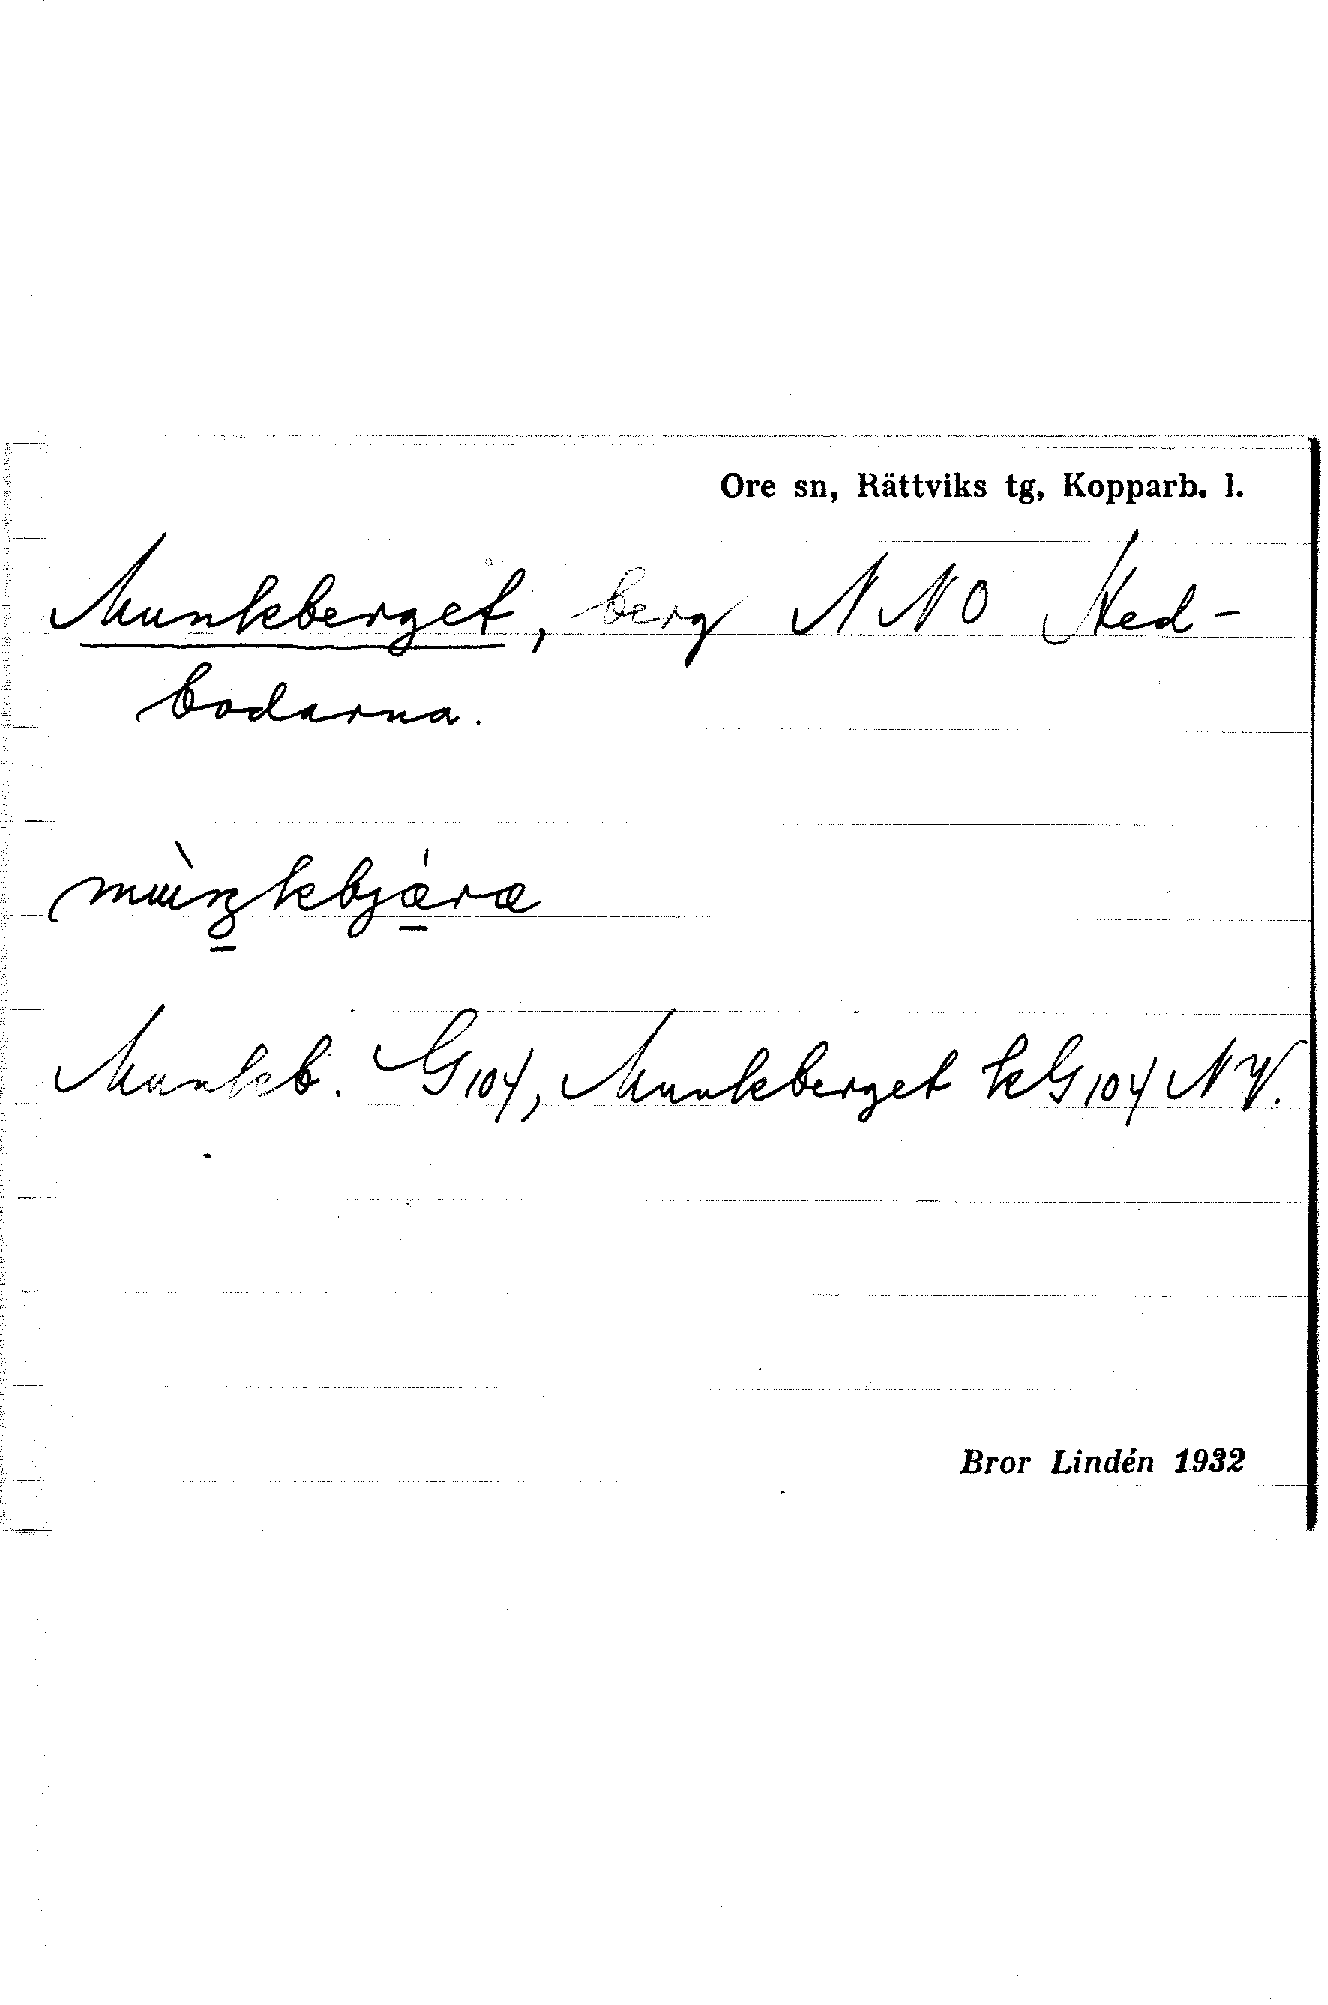 Ore sn, Rättviks tg, Kopparb. l.
Munkberget, berg NNO Hed-
bodarna.
mùŋkbjæ̀ræ
Munkb. G104, Munkberget kG104 NV.
Bror Lindén 1932